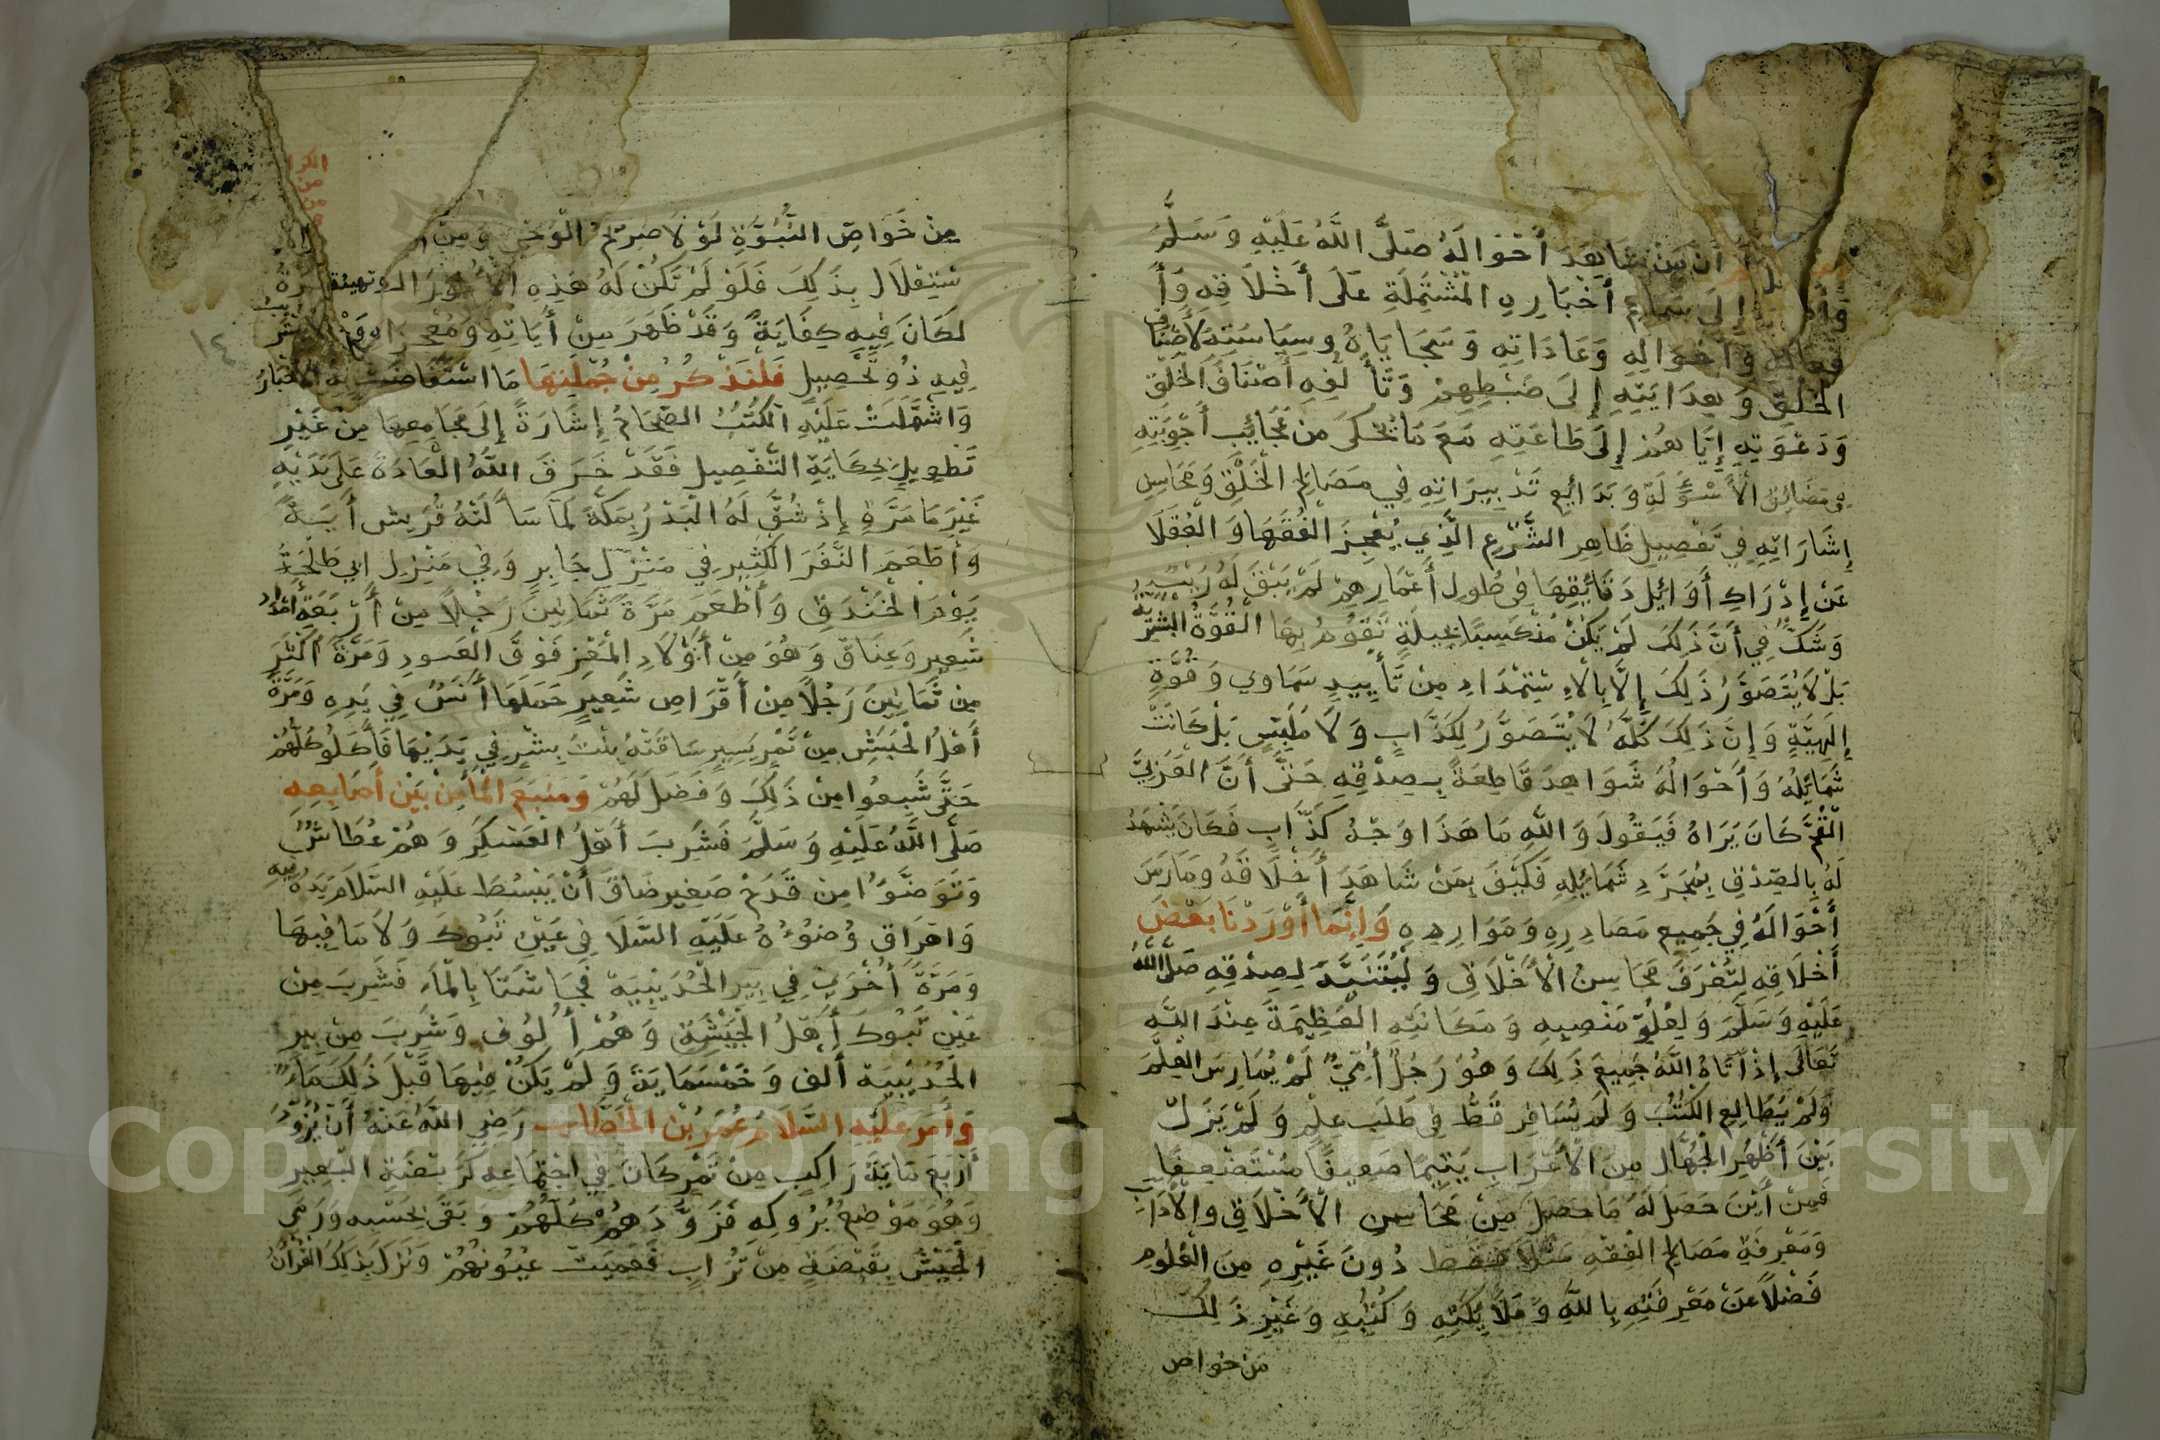 أن من شاهد أحواله صلى الله عليه وسلم
إلى سماع أخباره المشتملة على أخلاقه وأ
وأحواله وعاداته وسجاياه وسياسته لأصناف
الخلق وهدايته إلى ضبطهم وتألفه أصناف الخلق
ودعوته إياهم إلى طاعته مع ما يحكى من عجائب أجوبته
في مضائق الأسؤلة وبدائع تدبيراته في مصالح الخلق ومحاسن
إشاراته في تفصيل ظاهر الشرع الذي يعجز الفقها والعقلا
عن إدراك أوائل دقائقها في طول أعمارهم لم يبق له ريب
وشك في أن ذلك لم يكن مكتسبا بحيلة تقوم بها القوة البشرية
بل لا يتصور ذلك إلا بالاستمداد من تأييد سماوي وقوة
إلهية وإن ذلك كله لا يتصور لكذاب ولا ملبس بل كانت
شمائله وأحواله شواهد قاطعة بصدقه حتى أن العربي
القح كان يراه فيقول والله ما هذا وجه كذاب فكان يشهد
له بالصدق بمجرد شمائله فكيف بمن شاهد أخلاقه ومارس
أحواله في جميع مصادره وموارده وإنما أوردنا بعض
أخلاقه لتعرف محاسن الأخلاق وليتنبه لصدقه صلى الله
عليه وسلم ولعلو منصبه ومكانته العظيمة عند الله
تعالى إذ آتاه الله جميع ذلك وهو رجل أمي لم يمارس العلم
ولم يطالع الكتب ولم يسافر قط في طلب علم ولم يزل
بين أظهر الجهال من الأعراب يتيما ضعيفا مستضعفا
فمن أين حصل له ما حصل من محاسن الأخلاق والآداب
ومعرفة مصالح الفقه مثلا فقط دون غيره من العلوم
فضلا عن معرفته بالله وملائكته وكتبه وغير ذلك
من خواص
من خواص النبوة لولا صريح الوحي ومن
ستقلال بذلك فلو لم تكن له هذه الأمور
لكان فيه كفاية وقد ظهر من أياته ومعجزاته
فيه ذو تحصيل فلنذكر من جملتها ما استفاضت به الأخبار
واشتملت عليه الكتب الصحاح إشارة إلى مجامعها من غير
تطويل بحكاية التفصيل فقد خرق الله العادة على يديه
غير ما مرة إذ شق له البدر بمكة لما سألته قريش أية
وأطعم النفر الكثير في منزل جابر وفي منزل ابي طلحة
يوم الخندق وأطعم مرة ثمانين رجلا من أربعة أمداد
شعير وعناق وهو من أولاد المعز فوق العتود ومرة أكثر
من ثمانين رجلا من أقراص شعير حملها أنس في يده ومرة
أهل الجيش من تمر يسير ساقته بنت بشر في يديها فأكلوا كلهم
حتى شبعوا من ذلك وفضل لهم ومنبع الماء من بين أصابعه
صلى الله عليه وسلم فشرب أهل العسكر وهم عطاش
وتوضؤا من قدح صغير ضاق أن يبسط عليه السلام يده فيه
واهراق وضوءه عليه السلا في عين تبوك ولا ما فيها
ومرة أخرى في بير الحديبية فجاشتا بالماء فشرب من
عين تبوك أهل الجيش وهم ألوف وشرب من بير
الحديبية ألف وخمسماية ولم يكن فيها قبل ذلك ماء
وأمر عليه السلام عمر بن الخطاب رضي الله عنه أن يزود
أربع ماية راكب من تمر كان في اجتماعه كربضة البعير
وهو موضع بروكه فزودهم كلهم وبقى بحسبه ورمى
الجيش بقبضة من تراب فعميت عيونهم ونزل بذلك القرآن
١٤
Copyright © King Saud University